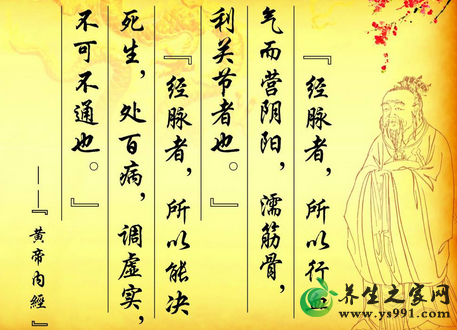 『经脉者，所以行血
气而营阴阳，濡筋骨，
利关节者也。』
『经脉者，所以能决
死生，处百病，调虚实，
不可不通也。』
——『黄帝内經』
养生之家网
www.ys991.com